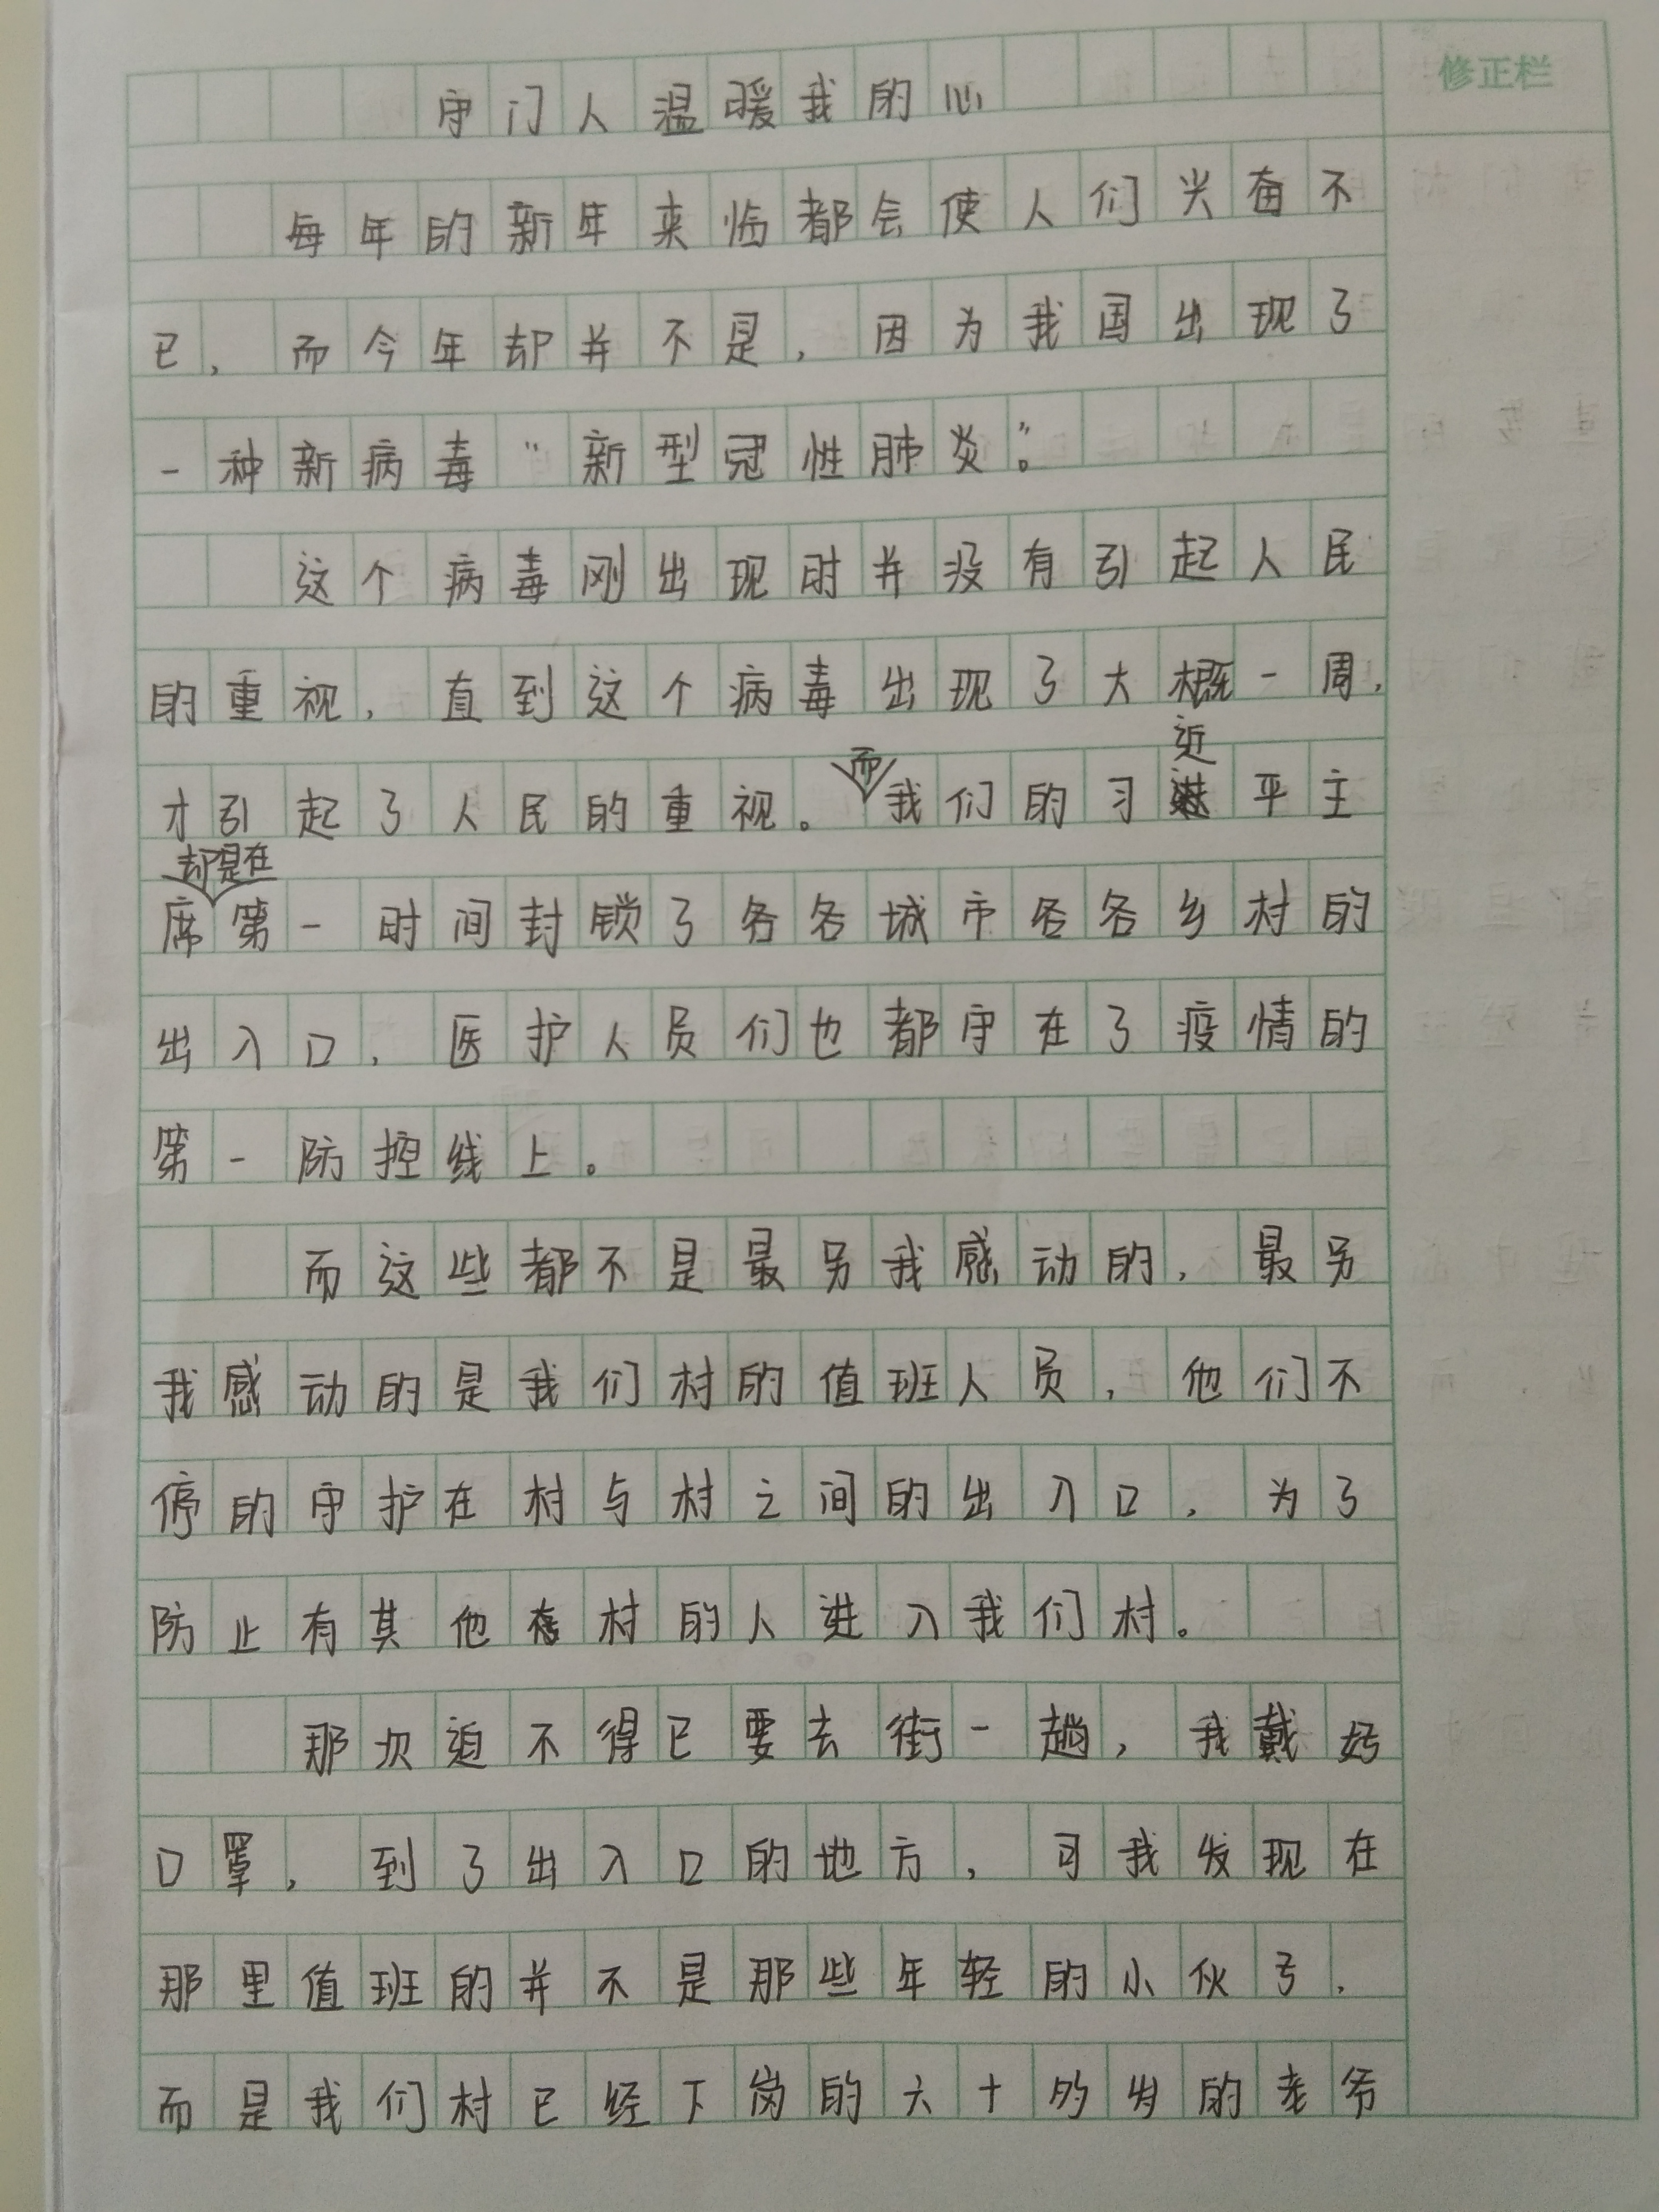 修正栏
守门人温暖我的心
每年的新年来临都会使人们兴奋不
已,而今年却并不是,因为我国出现了
一种新病毒“新型冠性肺炎”。
这个病毒刚出现时并没有引起人民
的重视,直到这个病毒出现了大概一周,
才引起了人民的重视。而我们的习近平主
席却是在第一时间封锁了各各城市各各乡村的
出入口,医护人员们也都守在了疫情的
第一防控线上。
而这些都不是最另我感动的,最另
我感动的是我们村的值班人员,他们不
停的守护在村与村之间的出入口,为了
防止有其他村的人进入我们村。
那次迫不得已要去街一趟,我戴好
口罩,到了出入口的地方,可我发现在
那里值班的并不是那些年轻的小伙子,
而是我们村已经下岗的六十多岁的老爷